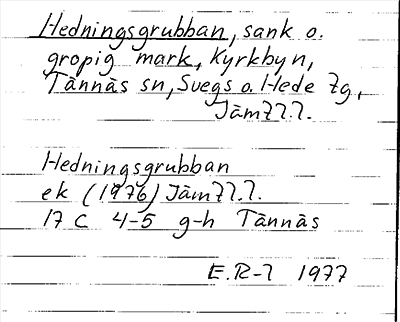 Hedningsgrubban, sank o.
gropig mark, Kyrkbyn,
Tännäs sn, Svegs o. Hede tg,
Jämtl.
Hedningsgrubban
ek (1976) Jämtl.
17 C 4-5 g-h Tännäs
E.R-l 1977